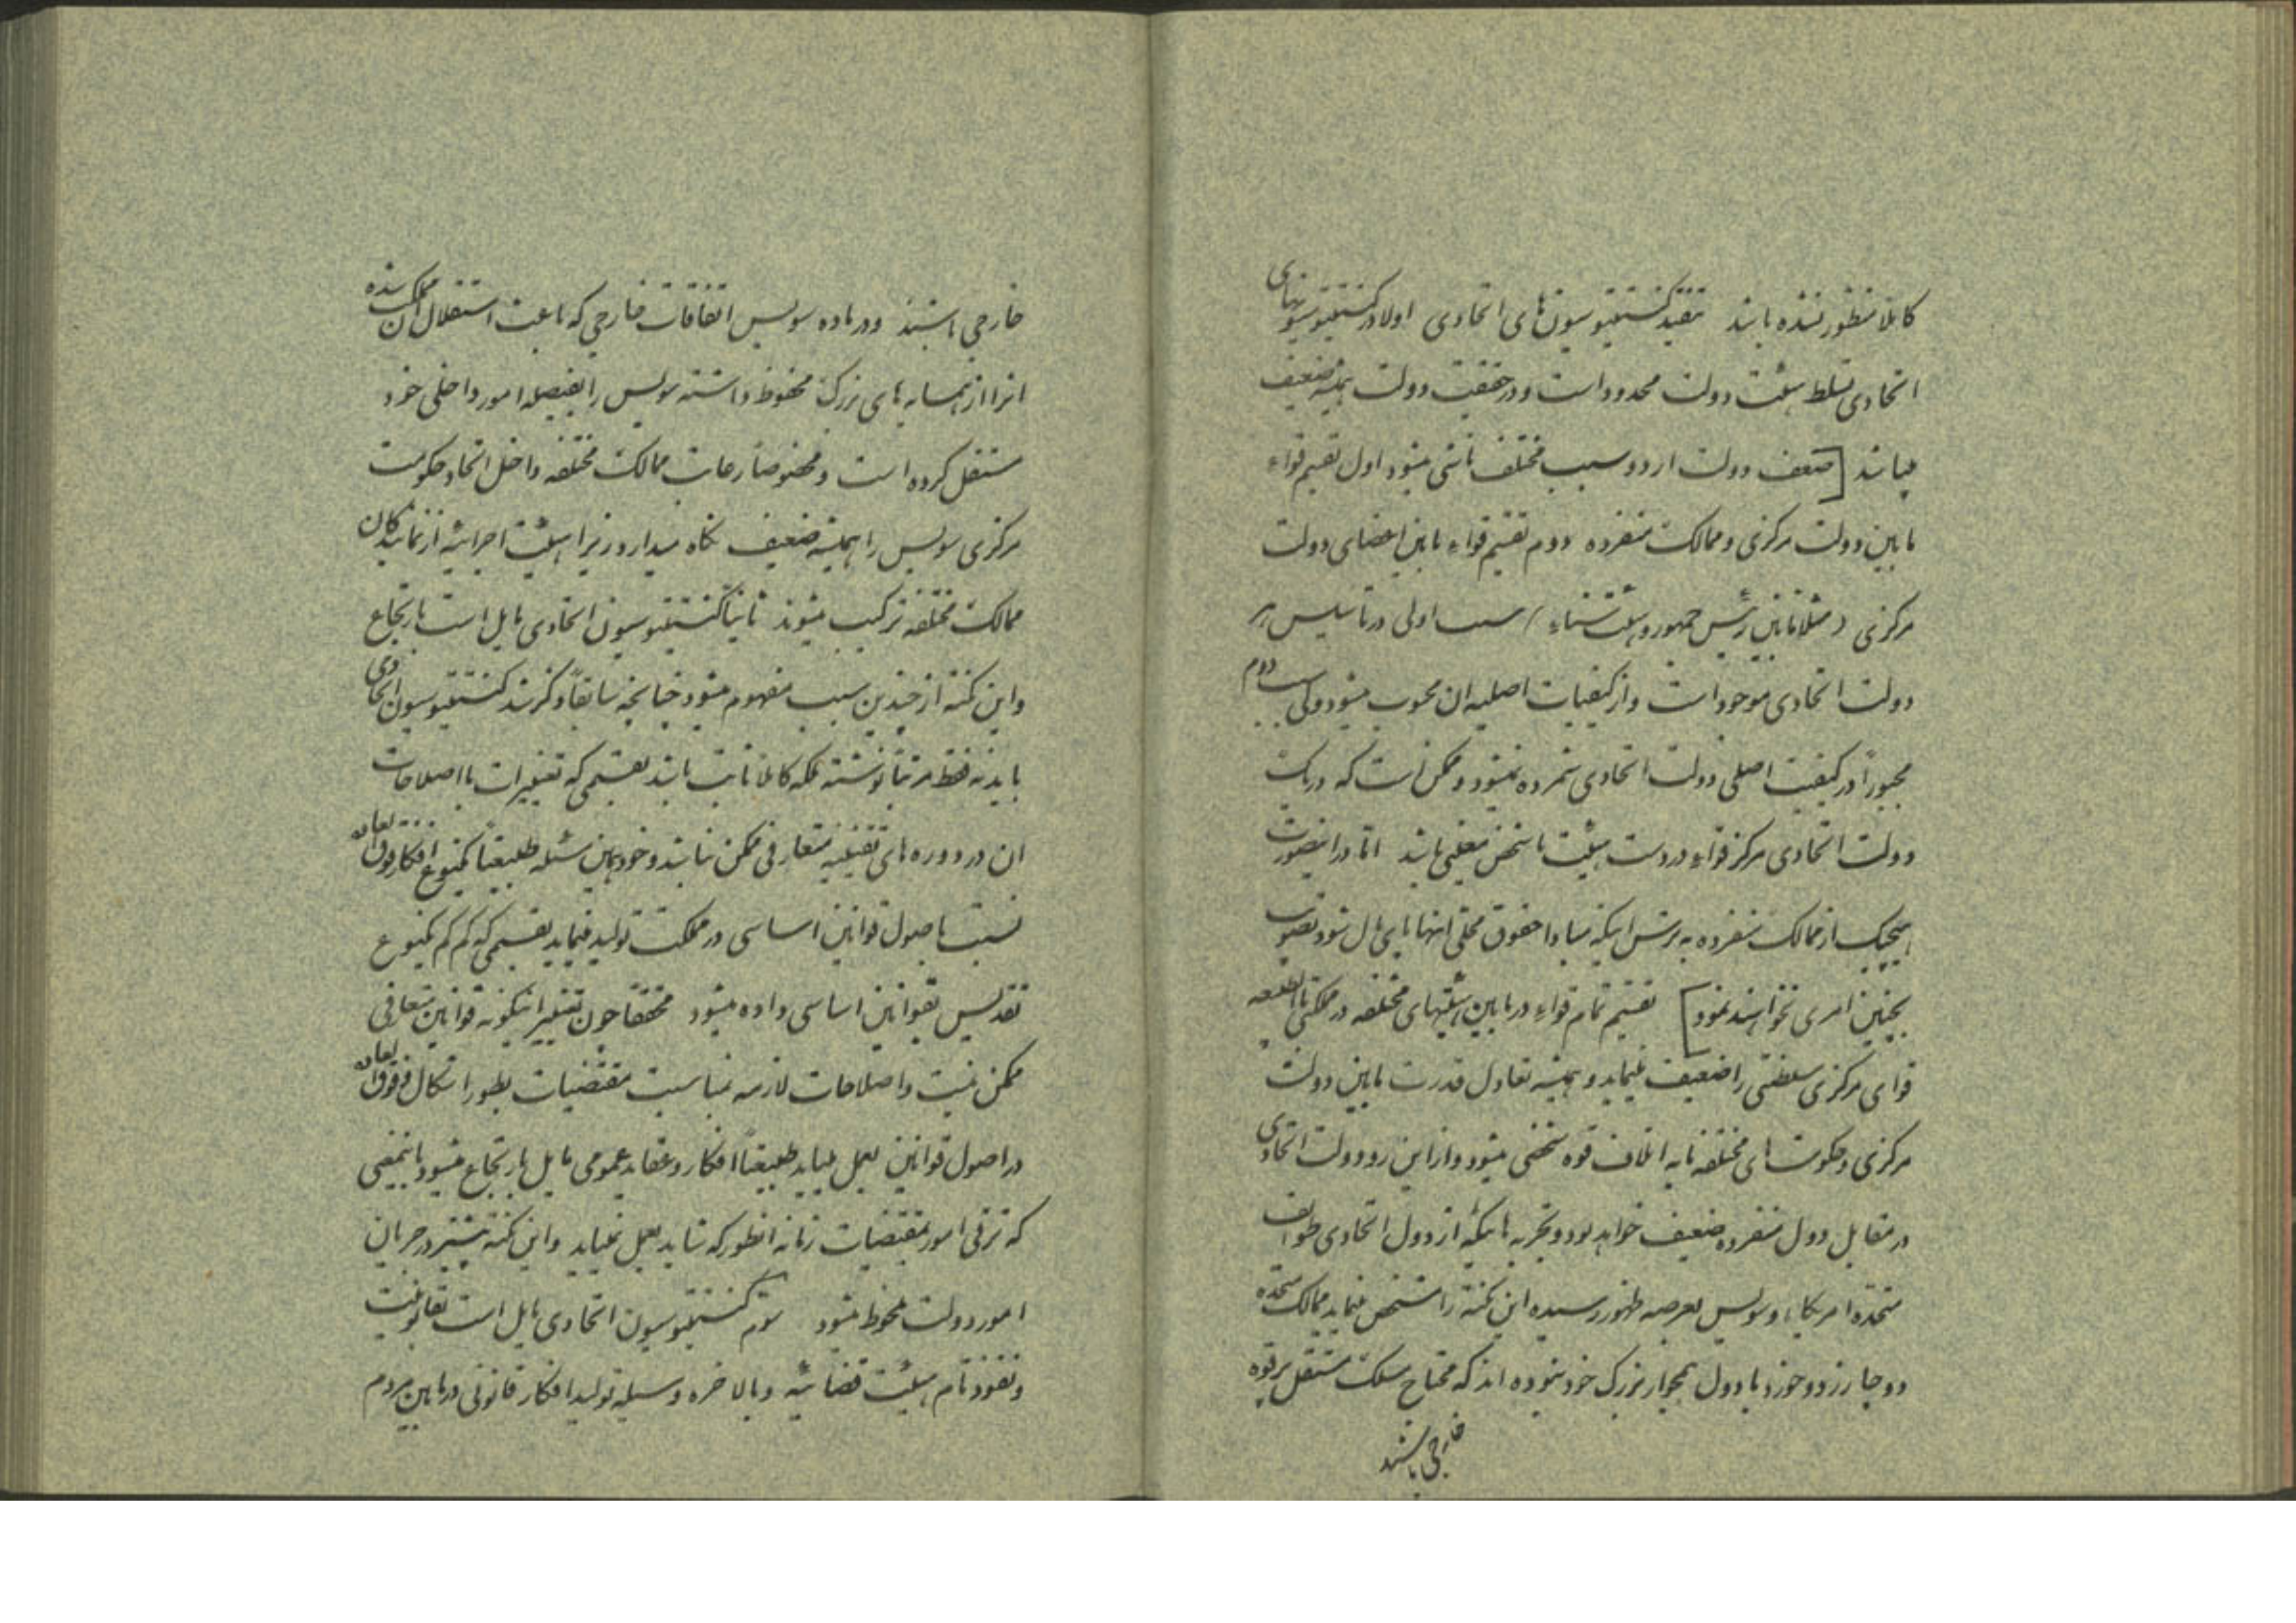 کاملا منظور نشده باشد تنقید کنستیتیوسیون های اتحادی اولا در کنستیتیوسیونهای
اتحادی تسلط هیئت دولت محدود است و در حقیقت دولت همیشه ضعیف
میباشد [ضعف دولت از دو سبب مختلف ناشی میشود اول تقسیم قواء
مابین دولت مرکزی و ممالک منفرده دوم تقسیم قواء مابین اعضای دولت
مرکزی (مثلا مابین رئیس جمهور و هیئت سناء) سبب اولی در تاسیس هر
دولت اتحادی موجود است و از کیفیات اصلیه ان محسوب میشود ولی سبب دوم
مجبوراً در کیفیت اصلی دولت اتحادی شمرده نمیشود و ممکن است که در یک
دولت اتحادی مرکز قواء در دست هیئت یا شخص معینی باشد اما در اینصورت
هیچیک از ممالک منفرده به ترس اینکه مبادا حقوق محلی انها پایمال شود تصویب
بچنین امری نخواهند نمود] تقسیم تمام قواء در مابین هیئتهای مختلفه در مملکتی بالطبیعه
قوای مرکزی سلطنتی را ضعیف مینماید و همیشه تعادل قدرت مابین دولت
مرکزی و حکومت های مختلفه مایه اتلاف قوه شخصی میشود و از این رو دولت اتحادی
در مقابل دول منفرده ضعیف خواهد بود و تجربه هائیکه از دول اتحادی طوایف
متحده امریکا و سویس بعرصه ظهور رسیده این نکته را مشخص مینماید ممالک متحده
دوچار زد و خورد با دول همجوار بزرگ خود نبوده اند که محتاج مسلک مستقل پر قوه
خارجی باشند
خارجی باشند و در ماده سویس اتفاقات خارجی که باعث استقلال ان مملکت شده
انرا از همسایه های بزرگ محفوظ داشته سویس را بفیصله امور داخلی خود
مستقل کرده است و مخصوصاً رعایت ممالک مختلفه داخل اتحاد حکومت
مرکزی سویس را همیشه ضعیف نگاه میدارد زیرا هیئت اجرائیه از نمایندگان
ممالک مختلفه ترکیب میشوند ثانیاً کنستیتیوسیون اتحادی مایل است بارتجاع
و این نکته از چندین سبب مفهوم میشود چنانچه سابقاً ذکر شد کنستیتیوسیون اتحادی
باید نه فقط مرتبا نوشته بلکه کاملا ثابت باشد بقسمی که تغییرات با اصلاحات
ان در دوره های تقنینیه متعارفی ممکن نباشد و خود همین مسئله طبیعتاً یکنوع افکار فوق العاده
نسبت باصول قوانین اساسی در مملکت تولید مینماید بقسمی که کم کم یکنوع
تقدیس بقوانین اساسی داده میشود محققا چون تغییر اینگونه قوانین متعارفی
ممکن نیست و اصلاحات لازمه بمناسبت مقتضیات بطور اشکال فوق العاده
در اصول قوانین بعمل میاید طبیعتاً افکار و عقاید عمومی مایل بارتجاع میشود باینمعنی
که ترقی امور بمقتضیات زمانه انطور که شاید بعمل نمیاید و این نکته بیشتر در جریان
امور دولت ملحوظ میشود سوم کنستیتیوسیون اتحادی مایل است بقانونیت
و نفوذ تام هیئت قضائیه و بالاخره وسیله تولید افکار قانونی در مابین مردم